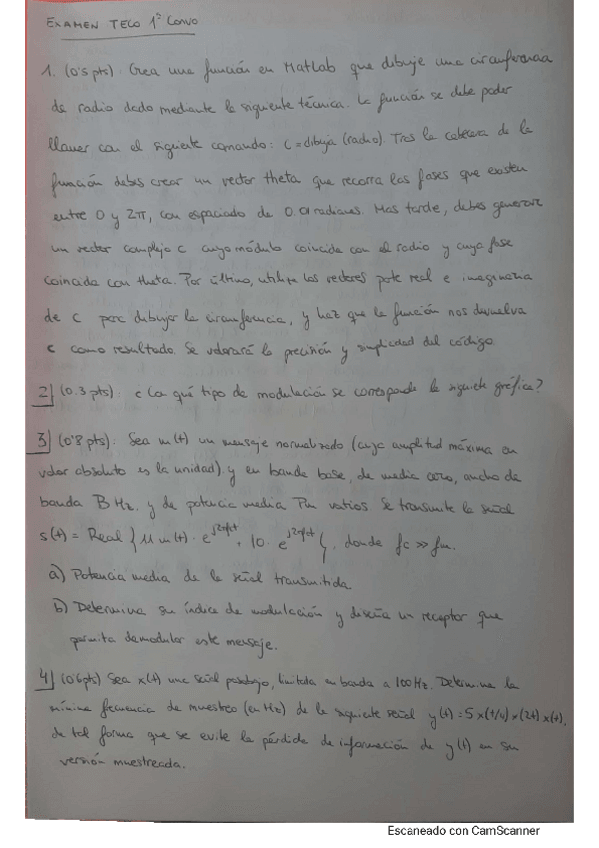 EXAMEN TELO 1ª CONVO
1. (0'5 pts). Crea una función en Matlab que dibuje una circunferencia
de radio dado mediante la siguiente técnica. La función se debe poder
llamar con el siguiente comando: C = dibuja (radio). Tras la cabecera de la
función debes crear un vector theta que recorra las fases que existen
entre 0 y 2π, con espaciado de 0.01 radianes. Mas tarde, debes generar
un vector complejo c cuyo módulo coincida con el radio y cuya fase
coincida con theta. Por último, utilize los vectores parte real e imaginaria
de c para dibujar la circunferencia, y haz que la función nos devuelva
c como resultado. Se valorará la precisión y simplicidad del código
2] (0.3 pts): ¿Con qué tipo de modulación se corresponde la siguiente gráfica?
3] (0'8 pts): Sea m(t) un mensaje normalizado (cuya amplitud máxima en
valor absoluto es la unidad) y en banda base, de media cero, ancho de
banda B Hz. y de potencia media Pm vatios. Se transmite la señal
s(t) = Real { μ m(t) · e^j2πfct + 10 · e^j2πfct }, donde fc >> fm.
a) Potencia media de la señal transmitida
b) Determina su índice de modulación y diseña un receptor que
permita demodular este mensaje.
4] (0'6 pts) Sea x(t) una señal pasobajo, limitada en banda a 100Hz. Determine la
mínima frecuencia de muestreo (en Hz) de la siguiente señal y(t) = 5 x(t/4) x(2t) x(t),
de tal forma que se evite la pérdida de información de y(t) en su
versión muestreada.
Escaneado con CamScanner